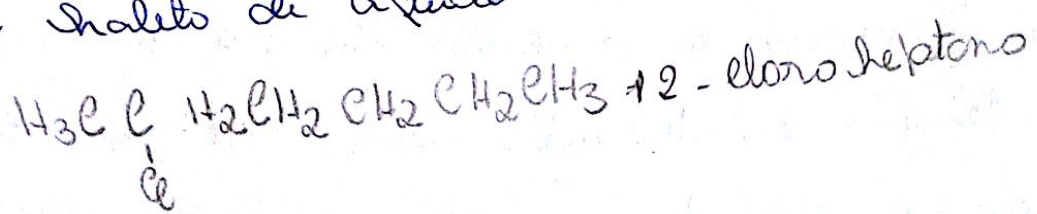 haleto de
H3C C H2CH2 CH2 CH2CH3 2-cloro heptano
Cl